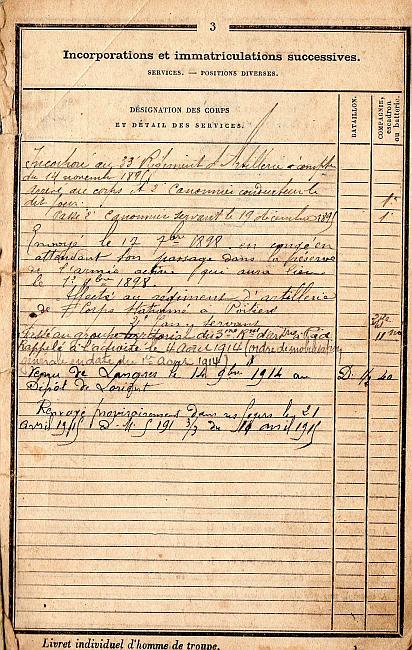 3
Incorporations et immatriculations successives.
SERVICES. — POSITIONS DIVERSES.
DÉSIGNATION DES CORPS
ET DÉTAIL DES SERVICES.
BATAILLON.
COMPAGNIE, escadron ou batterie.
Incorporé au 33e Régiment d'Artillerie à compter
du 14 novembre 1895
Arrivé au corps et 2e Canonnier conducteur le
dit jour. 1e
Passé 2e Canonnier servant le 19 décembre 1895 1e
Envoyé le 17 7bre 1898 en congé en
attendant son passage dans la réserve
de l'armée active, qui aura lieu
le 1er 9bre 1898.
Affecté au régiment d'artillerie
de Corps stationné à Poitiers
servant
Passé au groupe territorial du
Rappelé à l'activité le 4 août 1914 (ordre de mobilisation
générale en date du 1er août 1914)
Venu de Langres le 14 9bre 1914 au
Dépôt de Lorient
Renvoyé provisoirement dans ses foyers le 21
avril 1915 D. M. 191 3/3 du avril 1915
Livret individuel d'homme de troupe.